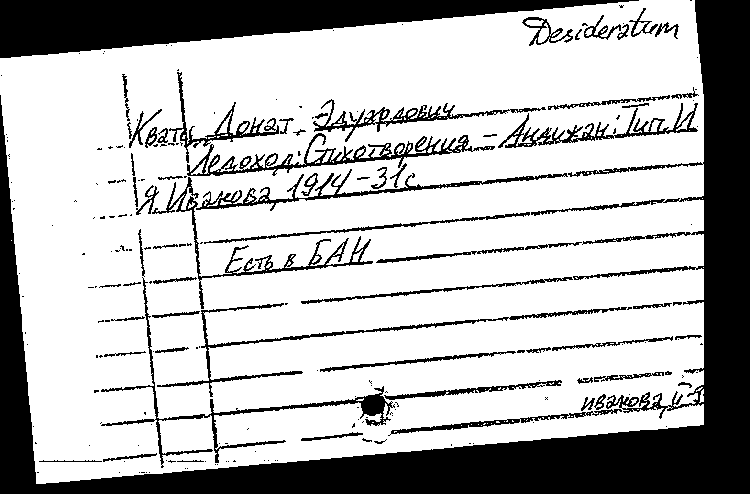 Desideratum
Донат Эдуардович
Ледоход: Стихотворения. - Андижан: Тип. И
Я. Ивакова, 1914 - 31 с
Есть в БАН
ивакова,